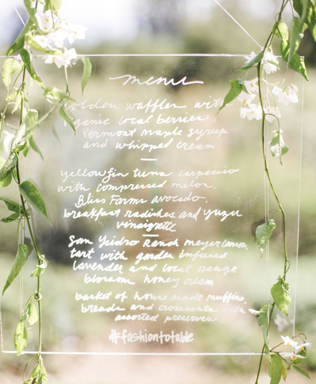 menu
golden waffles with
organic local berries
Vermont maple syrup
and whipped cream
yellowfin tuna carpaccio
with compressed melon,
Bliss Farms avocado,
breakfast radishes and yuzu
vinaigrette
San Ysidro Ranch meyer lemon
tart with garden infused
lavender and local orange
blossom honey cream
basket of house made muffins,
breads and croissants with
assorted preserves
#fashiontotable